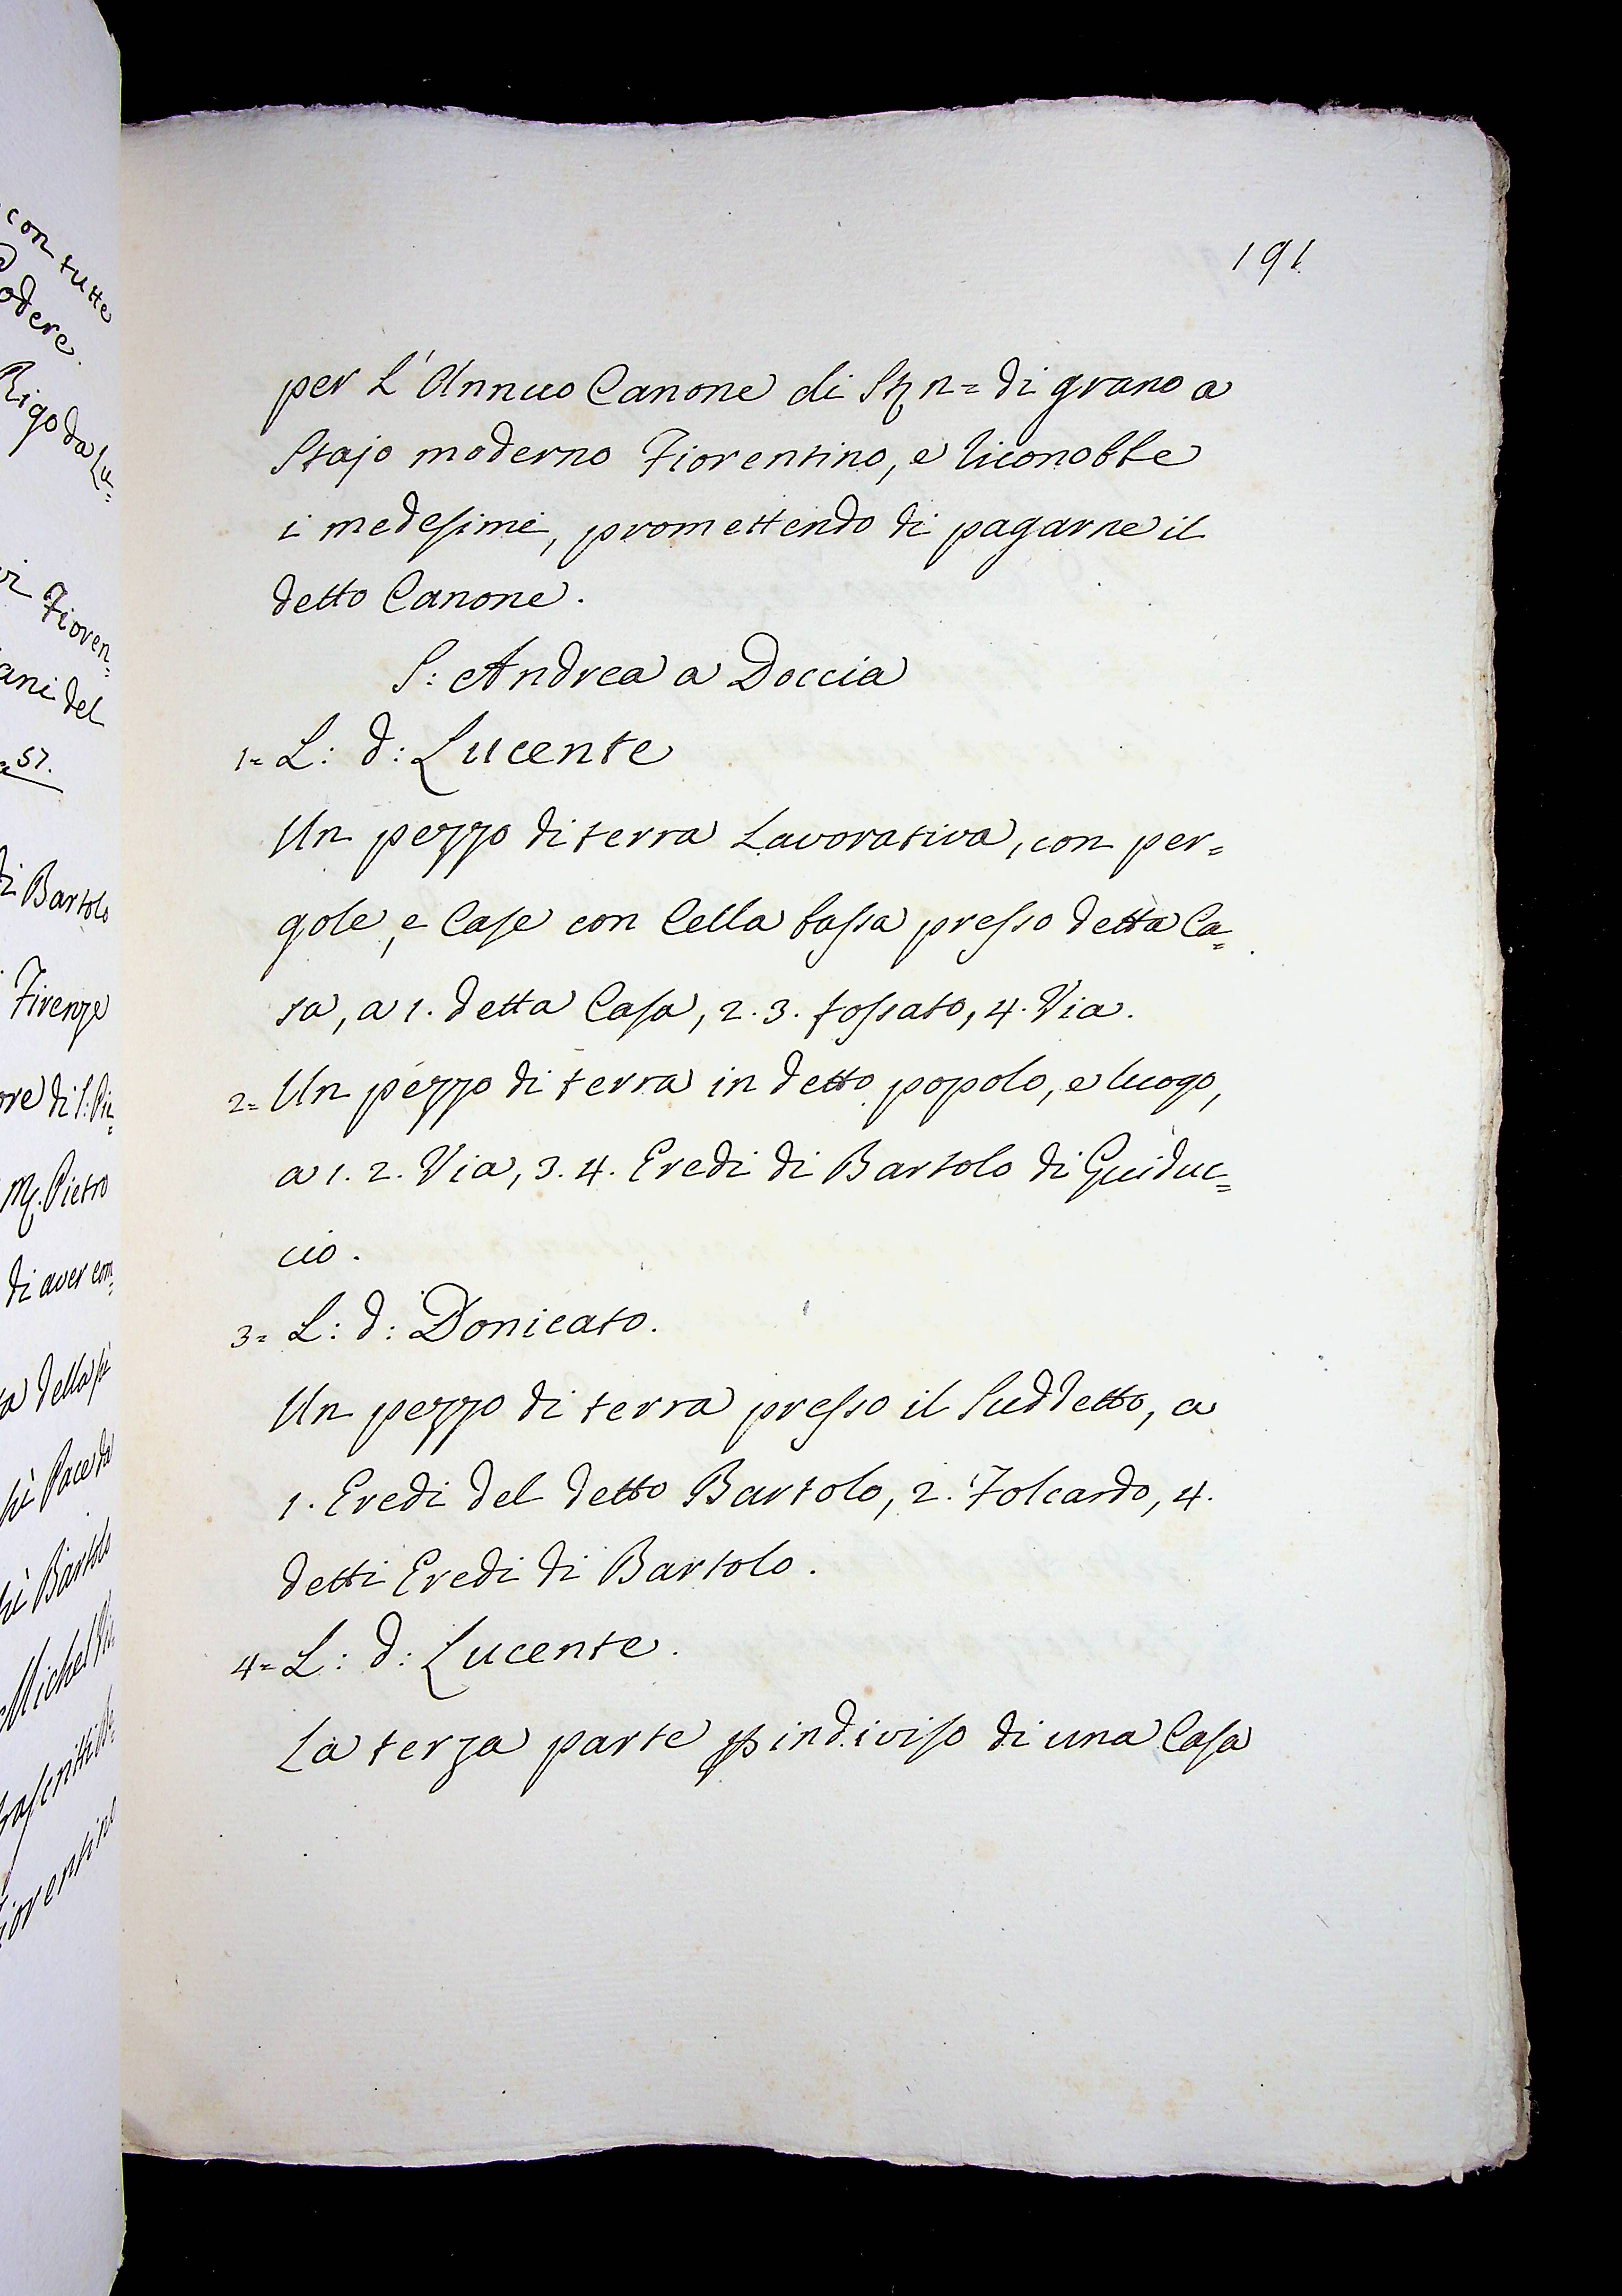 191
per L'Annuo Canone di n= di grano a
Stajo moderno Fiorentino, e riconobbe
i medesimi, promettendo di pagarne il
detto Canone.
S: Andrea a Doccia
1= L: d: Lucente
Un pezzo di terra Lavorativa, con per=
gole, e Case con Cella bassa presso detta Ca=
sa, a 1. detta Casa, 2. 3. fossato, 4. Via.
2= Un pezzo di terra in detto popolo, e luogo,
a 1. 2. Via, 3. 4. Eredi di Bartolo di Guiduc=
cio.
3= L: d: Donicato.
Un pezzo di terra presso il Suddetto, a
1. Eredi del detto Bartolo, 2. Folcardo, 4.
detti Eredi di Bartolo.
4= L: d: Lucente.
La terza parte indiviso di una Casa
con tutte
Rigo da Lu=
Fioren=
del
57.
di Bartolo
Firenze
Pietro
di aver com=
della
Pace da
Bartolo
Michel